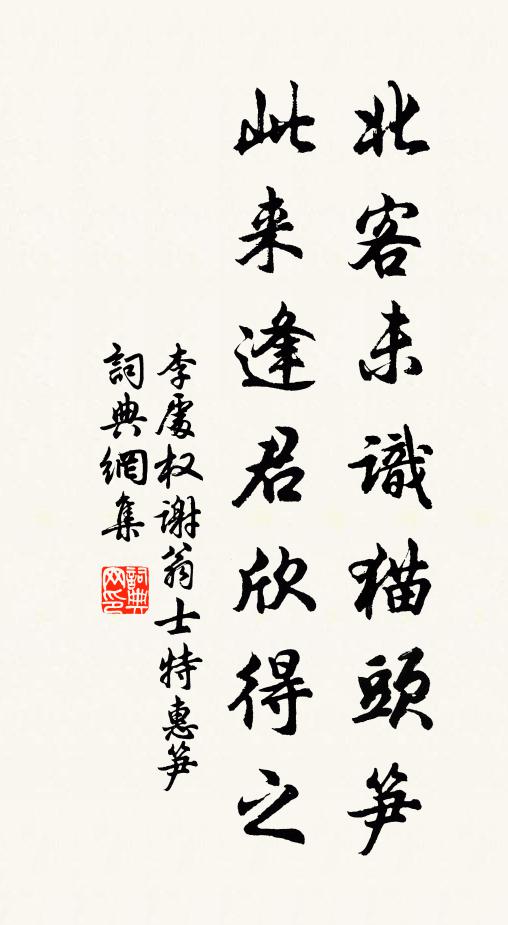 北客未識猫頭笋
此来逢君欣得之
李處权谢翁士特惠笋
詞典網集
詞典网印